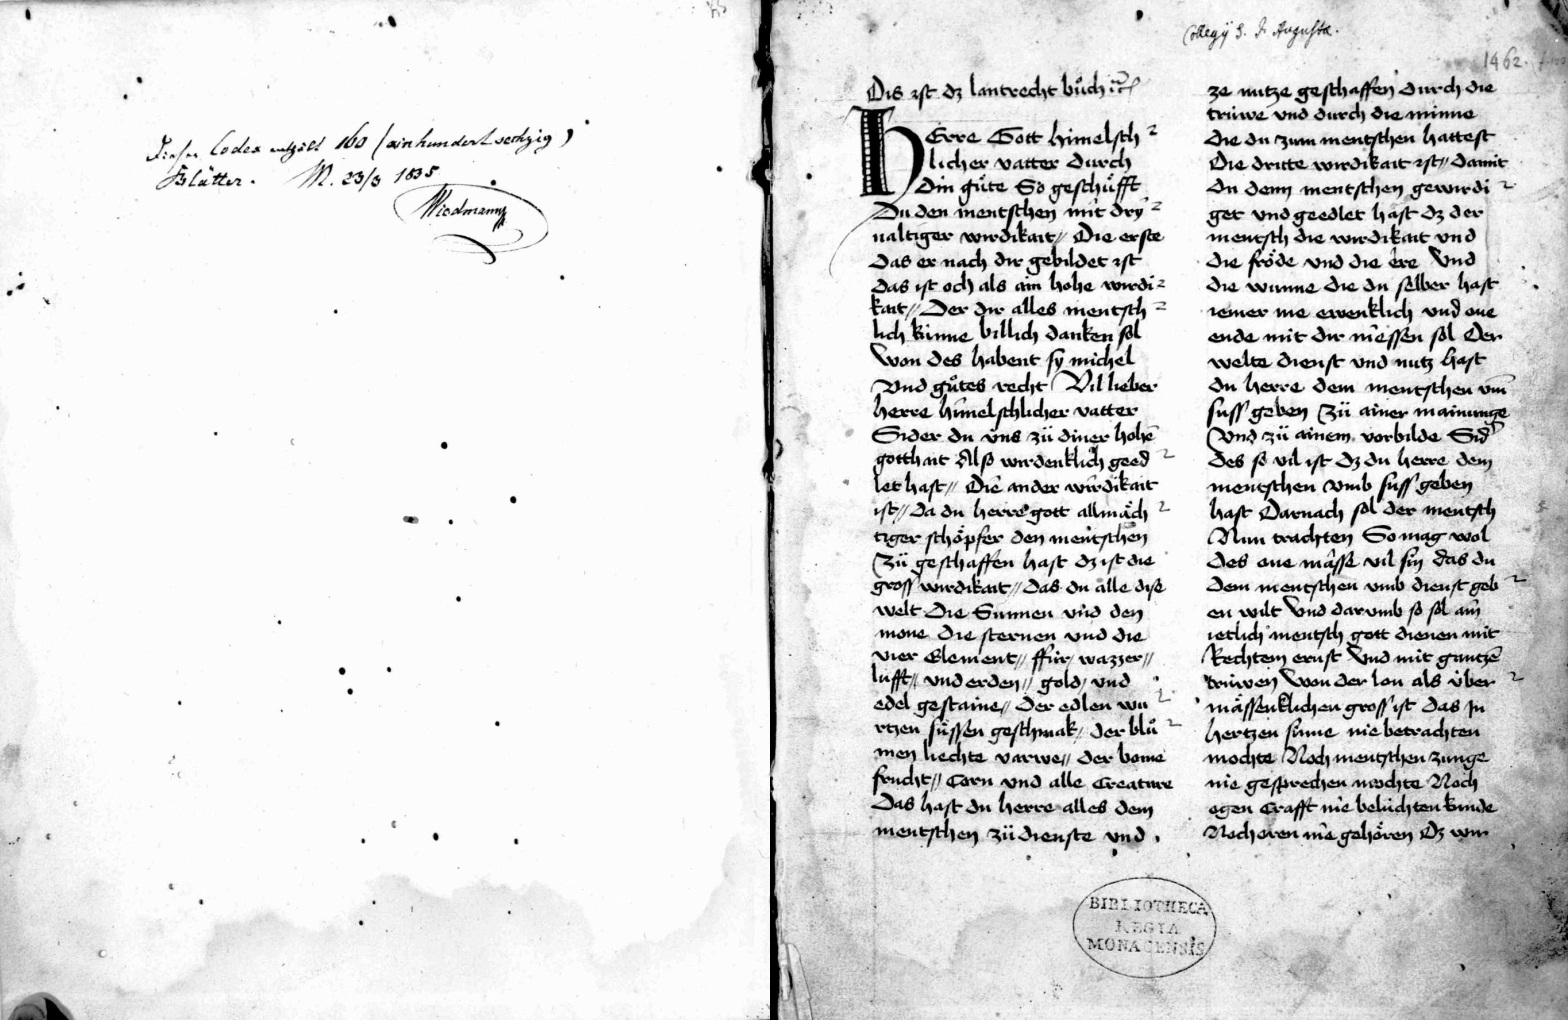 Dieser Codex enthält 160 (einhundert sechzig)
Blätter. M. 23/3 1835
Wiedmann
Collegij S. J. Augustæ.
1462.
Dis ist dz lantrecht bůch
HErre Gott himelsch
licher vatter durch
Din gůte So geschüfft
Du den mentschen mit dry
ualtiger wirdikait // Die erste
das er nach dir gebildet ist
das ist och als ain hohe wirdi
kait // Der dir alles mentsch
lich kinne billich danken sol
Won des habent sy michel
Vnd gůtes recht Vil lieber
herre himelschlicher vatter
Sider du vns zü diner hohē
gotthait Also wirdenklich geed
let hast // Die ander wirdikait
ist // da du herre gott allmäch
tiger schöpfer den mentschen
Zü geschaffen hast dz ist die
gross wirdikait // das du alle dise
welt Die Sunnen vnd den
mone die sternen vnd die
vier Element // ffür / wazzer //
lufft // vnd erden // gold / vnd
edel gestaine // Der edlen wu
rtzen süssen geschmak / der blů
men liechte varwe // der bome
frucht // Corn vnd alle Creature
Das hast du herre alles dem
mentschen zü dienste vnd
ze nutze geschaffen durch die
trüwe vnd durch die minne
die du zum mentschen hattest
Die dritte wirdikait ist // damit
du denn mentschen gewirdi
get vnd geedlet hast dz der
mentsch die wirdikait vnd
die fröde vnd die ere Vnd
die wunne die du selber hast
iemer me ewenklich vnd one
ende mit dir niessen sol Der
welte dienst vnd nutz hast
du herre dem mentschen vm̄
suss geben Zü ainer mainunge
Vnd zü ainem vorbilde Sid
des so vil ist dz du herre dem
mentschen vmb suss geben
hast Darnach sol der mentsch
Nun trachten So mag wol
des one mässe vil sin das du
dem mentschen vmb dienst geb
en wilt Vnd darumb so sol ain
ietlich mentsch gott dienen mit
Rechtem ernst Vnd mit gantzē
trüwen Won der lon als über
mässenklichen gross ist das In
hertzen sinne nie betrachten
mochte Noch mentschen zunge
nie gesprechen mochte Noch
ogen Crafft nie belüchten kunde
Noch oren nie gehören Dz wir
BIBLIOTHECA
REGIA
MONACENSIS